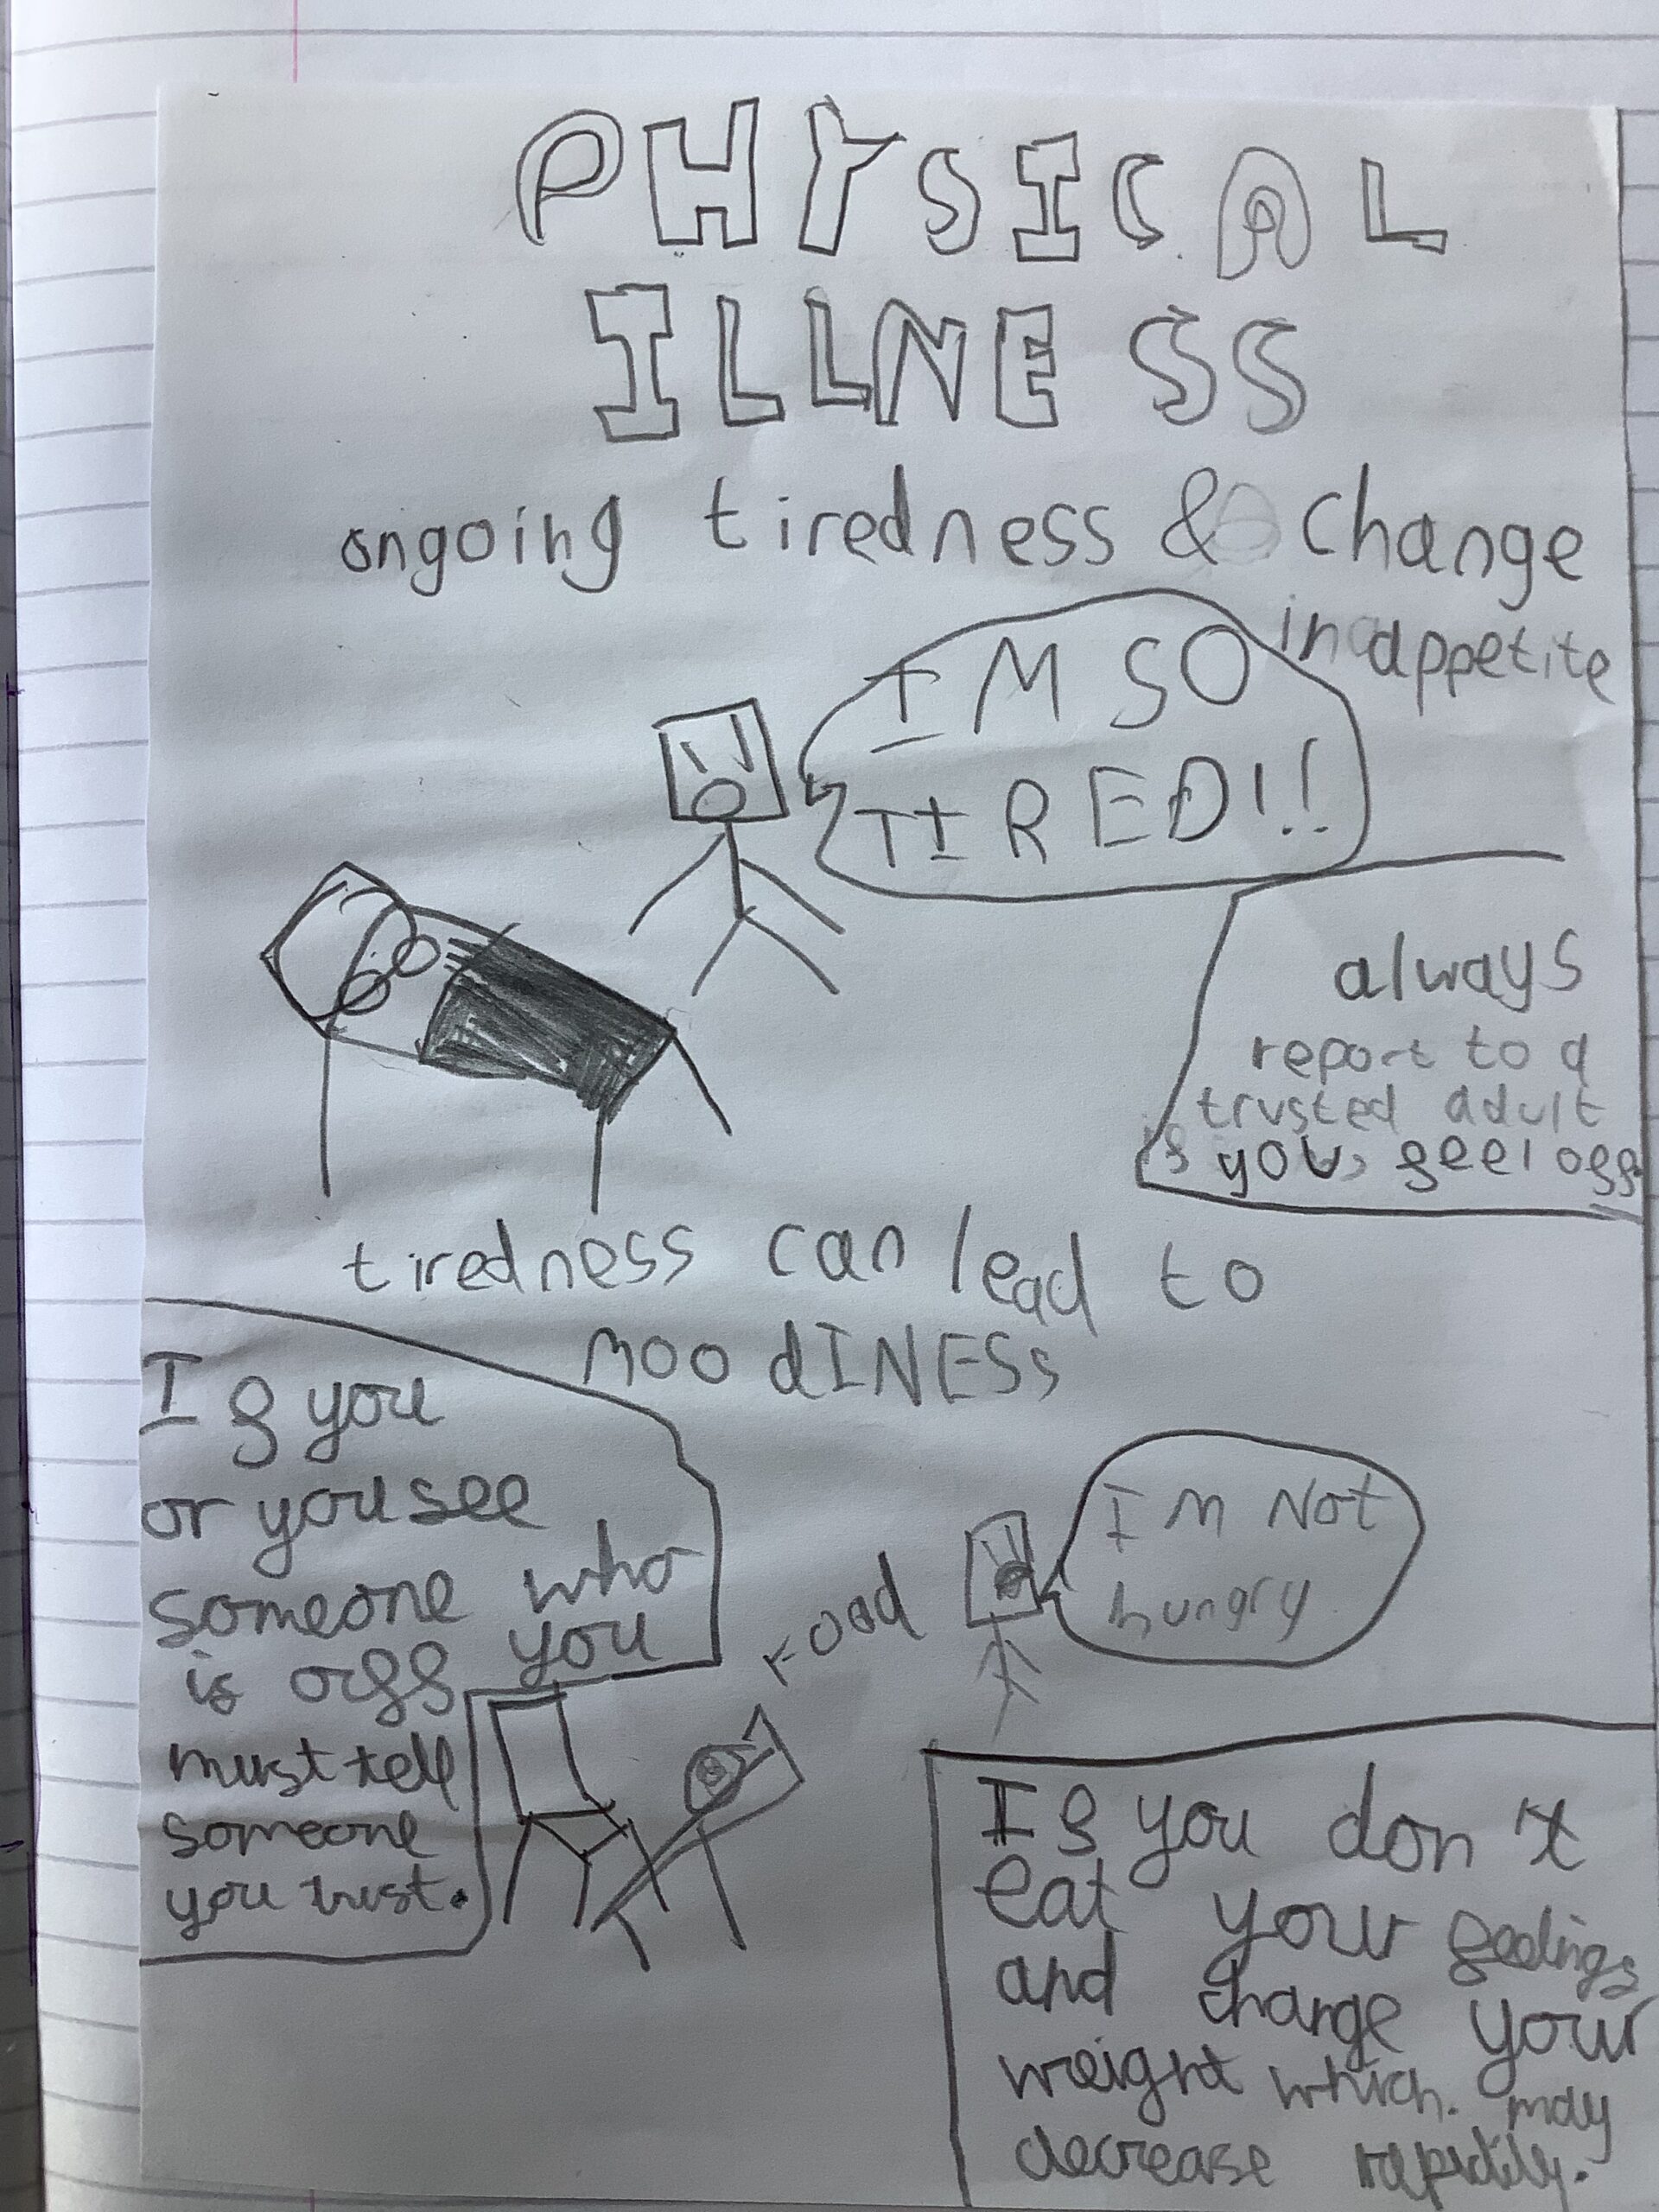 PHYSICAL
ILLNESS
ongoing tiredness & change
in appetite
IM SO
TIRED!!
always
report to a
trusted adult
if you feel off.
tiredness can lead to
MOODINESS
If you
or you see
someone who
is off you
must tell
someone
you trust.
FOOD
IM Not
hungry
If you don't
eat your feelings
and change your
weight which. may
decrease rapidily.